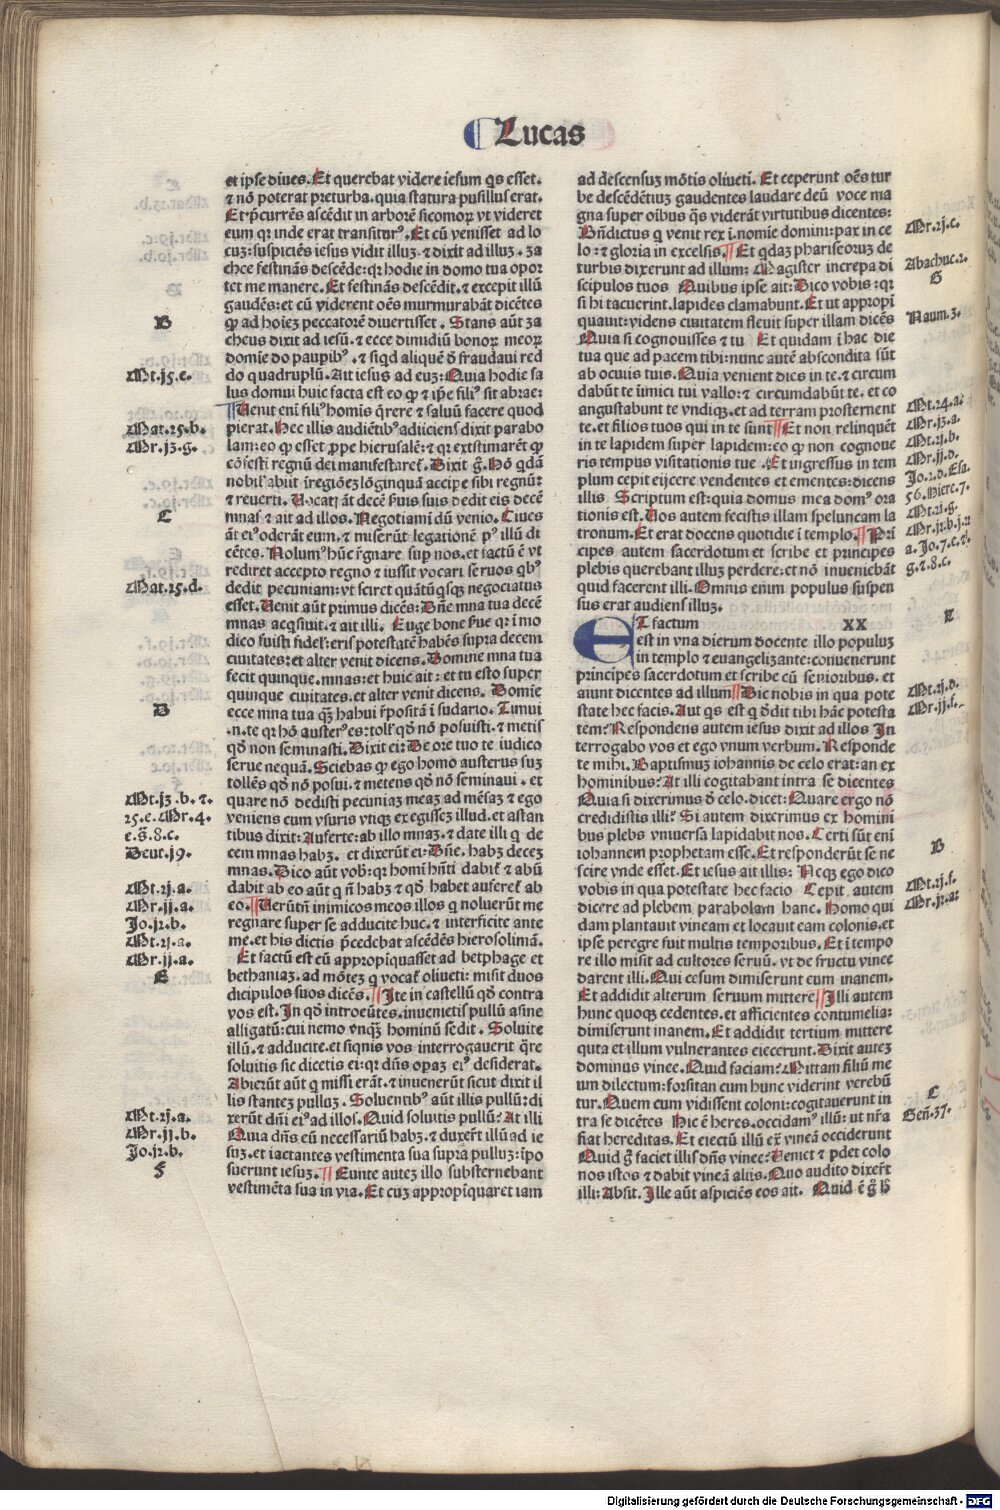 Lucas
et ipse diues. Et querebat videre iesum q̄s esset.
⁊ nō poterat pre turba. quia statura pusillus erat.
Et p̄currēs ascēdit in arborē sicomoꝝ vt videret
eum qꝛ inde erat transiturꝰ. Et cū venisset ad lo
cuꝫ: suspiciēs iesus vidit illuꝫ. ⁊ dixit ad illuꝫ. ʒa
chee festinās descēde: qꝛ hodie in domo tua opor
tet me manere. Et festinās descēdit. ⁊ excepit illū
gaudēs: et cū viderent oēs murmurabāt dicētes
ꝙ ad hoieꝫ peccatorē diuertisset. Stans aūt ʒa
cheus dixit ad iesū. ⁊ ecce dimidiū bonoꝝ meoꝝ
domie do paupibꝰ. ⁊ siqd aliquē d̄fraudaui red
do quadruplū. Ait iesus ad euꝫ: Quia hodie sa
lus domui huic facta est eo ꝙ ⁊ ip̄e filiꝰ sit abrae:
Uenit eni filiꝰ homis q̄rere ⁊ saluū facere quod
pierat. Hec illis audiētibꝰ adiiciens dixit parabo
lam: eo ꝙ esset ꝓpe hierusalē: ⁊ qꝛ extstimarēt ꝙ
cōfesti regnū dei manifestaret. Dixit g̊. Hō qdā
nobilꝰ abiit ī regiōeꝫ lōginquā accipe sibi regnū:
⁊ reuerti. Uocatꝭ āt decē s̄uis suis dedit eis decē
mnas ⁊ ait ad illos. Negotiami dū venio. Ciues
āt eiꝰ oderāt eum. ⁊ miserūt legationē pꝰ illū di
cētes. Nolumꝰ hūc r̄gnare sup nos. et factū ē vt
rediret accepto regno ⁊ iussit vocari seruos qbꝰ
dedit pecuniam: vt sciret quātū qsqꝫ negociatus
esset. Uenit aūt primus dicēs: Dn̄e mna tua decē
mnas acqsiuit. ⁊ ait illi. Euge bone s̄ue qꝛ i mo
dico fuisti fidelꝭ: eris potestatē habēs supra decem
ciuitates: et alter venit dicens. Domine mna tua
fecit quinque. mnas: et huic ait: et tu esto super
quinque ciuitates. et alter venit dicens. Domie
ecce mna tua qꝫ habui r̄positā ī sudario. Timui
.n. te qꝛ hō austerꝰ es: tolꝭ qd̄ nō posuisti. ⁊ metis
qd̄ non seminasti. Dixit ei: De ore tuo te iudico
serue nequā. Sciebas ꝙ ego homo austerus suꝫ
tollēs qd̄ nō posui. ⁊ metens qd̄ nō seminaui. et
quare nō dedisti pecuniaꝫ meaꝫ ad mēsaꝫ ⁊ ego
veniens cum vsuris vtiqꝫ exegisseꝫ illud. et astan
tibus dixit: Auferte: ab illo mnaꝫ. ⁊ date illi q de
cem mnas habꝫ. et dixerūt ei: Dn̄e. habꝫ deceꝫ
mnas. Dico aūt vob̄: qꝛ homi hn̄ti dabiꝭ ⁊ abū
dabit ab eo aūt q n̄ habꝫ ⁊ qd̄ habet auferet̄ ab
eo. Uerūtn̄ inimicos meos illos q noluerūt me
regnare super se adducite huc. ⁊ interficite ante
me. et his dictis p̄cedebat ascēdēs hierosolimā.
Et factū est cū appropiquasset ad betphage et
bethaniaꝫ. ad mōteꝫ q vocat̄ oliueti: misit duos
dicipulos suos dicēs. Ite in castellū qd̄ contra
vos est. In qd̄ introeūtes. inuenietis pullū asine
alligatū: cui nemo vnqꝫ hominū sedit. Soluite
illū. ⁊ adducite. et siqnis vos interrogauerit q̄re
soluitis sic dicetis ei: qꝛ dn̄s opaꝫ eiꝰ desiderat.
Abierūt aūt q missi erāt. ⁊ inuenerūt sicut dixit il
lis stantez pulluꝫ. Soluentibꝰ aūt illis pullū: di
xerūt dn̄i eiꝰ ad illos. Quid soluitis pullū? At illi
Quia dn̄s eū necessariū habꝫ. ⁊ duxer̄t illū ad ie
suꝫ. et iactantes vestimenta sua supra pulluꝫ: īpo
suerunt iesuꝫ. Eunte auteꝫ illo substernebant
vestimēta sua in via. Et cuꝫ appropīquaret iam
B
Mt.j5.e.
Mat.25.b.
Mr.j3.g.
C
Mat.25.d.
D
Mt.j3.b.⁊.
25.e. Mr.4.
e.g̊.8.c.
Deut.j9.
Mt.2j.a.
Mr.jj.a.
Jo.j2.b.
Mt.2j.a.
Mr.jj.a.
E
Mt.2j.a.
Mr.jj.b.
Jo.j2.b.
F
ad descensuꝫ mōtis oliueti. Et ceperunt oēs tur
be descēdētiuꝫ gaudentes laudare deū voce ma
gna super oibus q̄s viderāt virtutibus dicentes:
Bn̄dictus q venit rex ī. nomie domini: pax in ce
lo: ⁊ gloria in excelsis. Et qdaꝫ phariseoruꝫ de
turbis dixerunt ad illum: Magister increpa di
scipulos tuos Quibus ipse ait: Dico vobis: qꝛ
si hi tacuerint. lapides clamabunt. Et ut appropi
quauit: videns ciuitatem fleuit super illam dicēs
Quia si cognouisses ⁊ tu Et quidam ī hac die
tua que ad pacem tibi: nunc autē abscondita sūt
ab oculis tuis. Quia venient dies in te. ⁊ circum
dabūt te īimici tui vallo: ⁊ circundabūt te. et co
angustabunt te vndiqꝫ. et ad terram prosternent
te. et filios tuos qui in te sunt Et non relinquēt
in te lapidem super lapidem: eo ꝙ non cognoue
ris tempus visitationis tue. Et ingressus in tem
plum cepit eijcere vendentes et ementes: dicens
illis Scriptum est: quia domus mea domꝰ ora
tionis est. Uos autem fecistis illam speluncam la
tronum. Et erat docens quotidie ī templo. Pri
cipes autem sacerdotum et scribe et principes
plebis querebant illuꝫ perdere: et nō inueniebāt
quid facerent illi. Omnis enim populus suspen
sus erat audiens illuꝫ.
ET factum XX
est in vna dierum docente illo populuꝫ
in templo ⁊ euangelizante: conuenerunt
principes sacerdotum et scribe cū senioribus. et
aiunt dicentes ad illum Dic nobis in qua pote
state hec facis. Aut qs est q d̄dit tibi hāc potesta
tem? Respondens autem iesus dixit ad illos In
terrogabo vos et ego vnum verbum. Responde
te mihi. Baptismuꝫ iohannis de celo erat: an ex
hominibus? At illi cogitabant intra se dicentes
Quia si dixerimus d̄ celo. dicet: Quare ergo nō
credidistis illi? Si autem dixerimus ex homini
bus plebs vniuersa lapidabit nos. Certi sūt eni
iohannem prophetam esse. Et responderūt se ne
scire vnde esset. Et iesus ait illis: Neqꝫ ego dico
vobis in qua potestate hec facio Cepit autem
dicere ad plebem parabolam hanc. Homo qui
dam plantauit vineam et locauit eam colonis. et
ipse peregre fuit multis temporibus. Et ī tempo
re illo misit ad cultores seruū. vt de fructu vinee
darent illi. Qui cesum dimiserunt eum inanem.
Et addidit alterum seruum mittere Illi autem
hunc quoqꝫ cedentes. et afficientes contumelia:
dimiserunt inanem. Et addidit tertium mittere
quia et illum vulnerantes eiecerunt. Dixit auteꝫ
dominus vinee. Quid faciam? Mittam filiū me
um dilectum: forsitan cum hunc viderint verebū
tur. Quem cum vidissent coloni: cogitauerunt in
tra se dicētes Hic ē heres. occidamꝰ illū: ut nr̄a
fiat hereditas. Et eiectū illū ex̄ vineā occiderunt
Quid g̊ faciet illis dn̄s vinee? Ueniet ⁊ pdet colo
nos istos ⁊ dabit vineā aliis. Quo audito dixer̄t
illi: Absit. Ille aūt aspiciēs eos ait. Quid ē g̊ h̄
Mr.2j.c.
Abachuc.2.
G
Naum.3.
Mt.24.a.
Mr.j3.a.
Mt.2j.b.
Mr.jj.d.
Jo.2.d. Esa.
56. Hiere.7.
Mt.2j.g.
Mr.j2.b.j2
a. Jo.7.c.⁊.
g.⁊.8.c.
E
Mt.2j.d.
Mr.jj.f.
B
Mt.2j.f.
Mr.j2.a:
C
Gen̄.37.
Digitalisierung gefördert durch die Deutsche Forschungsgemeinschaft - DFG